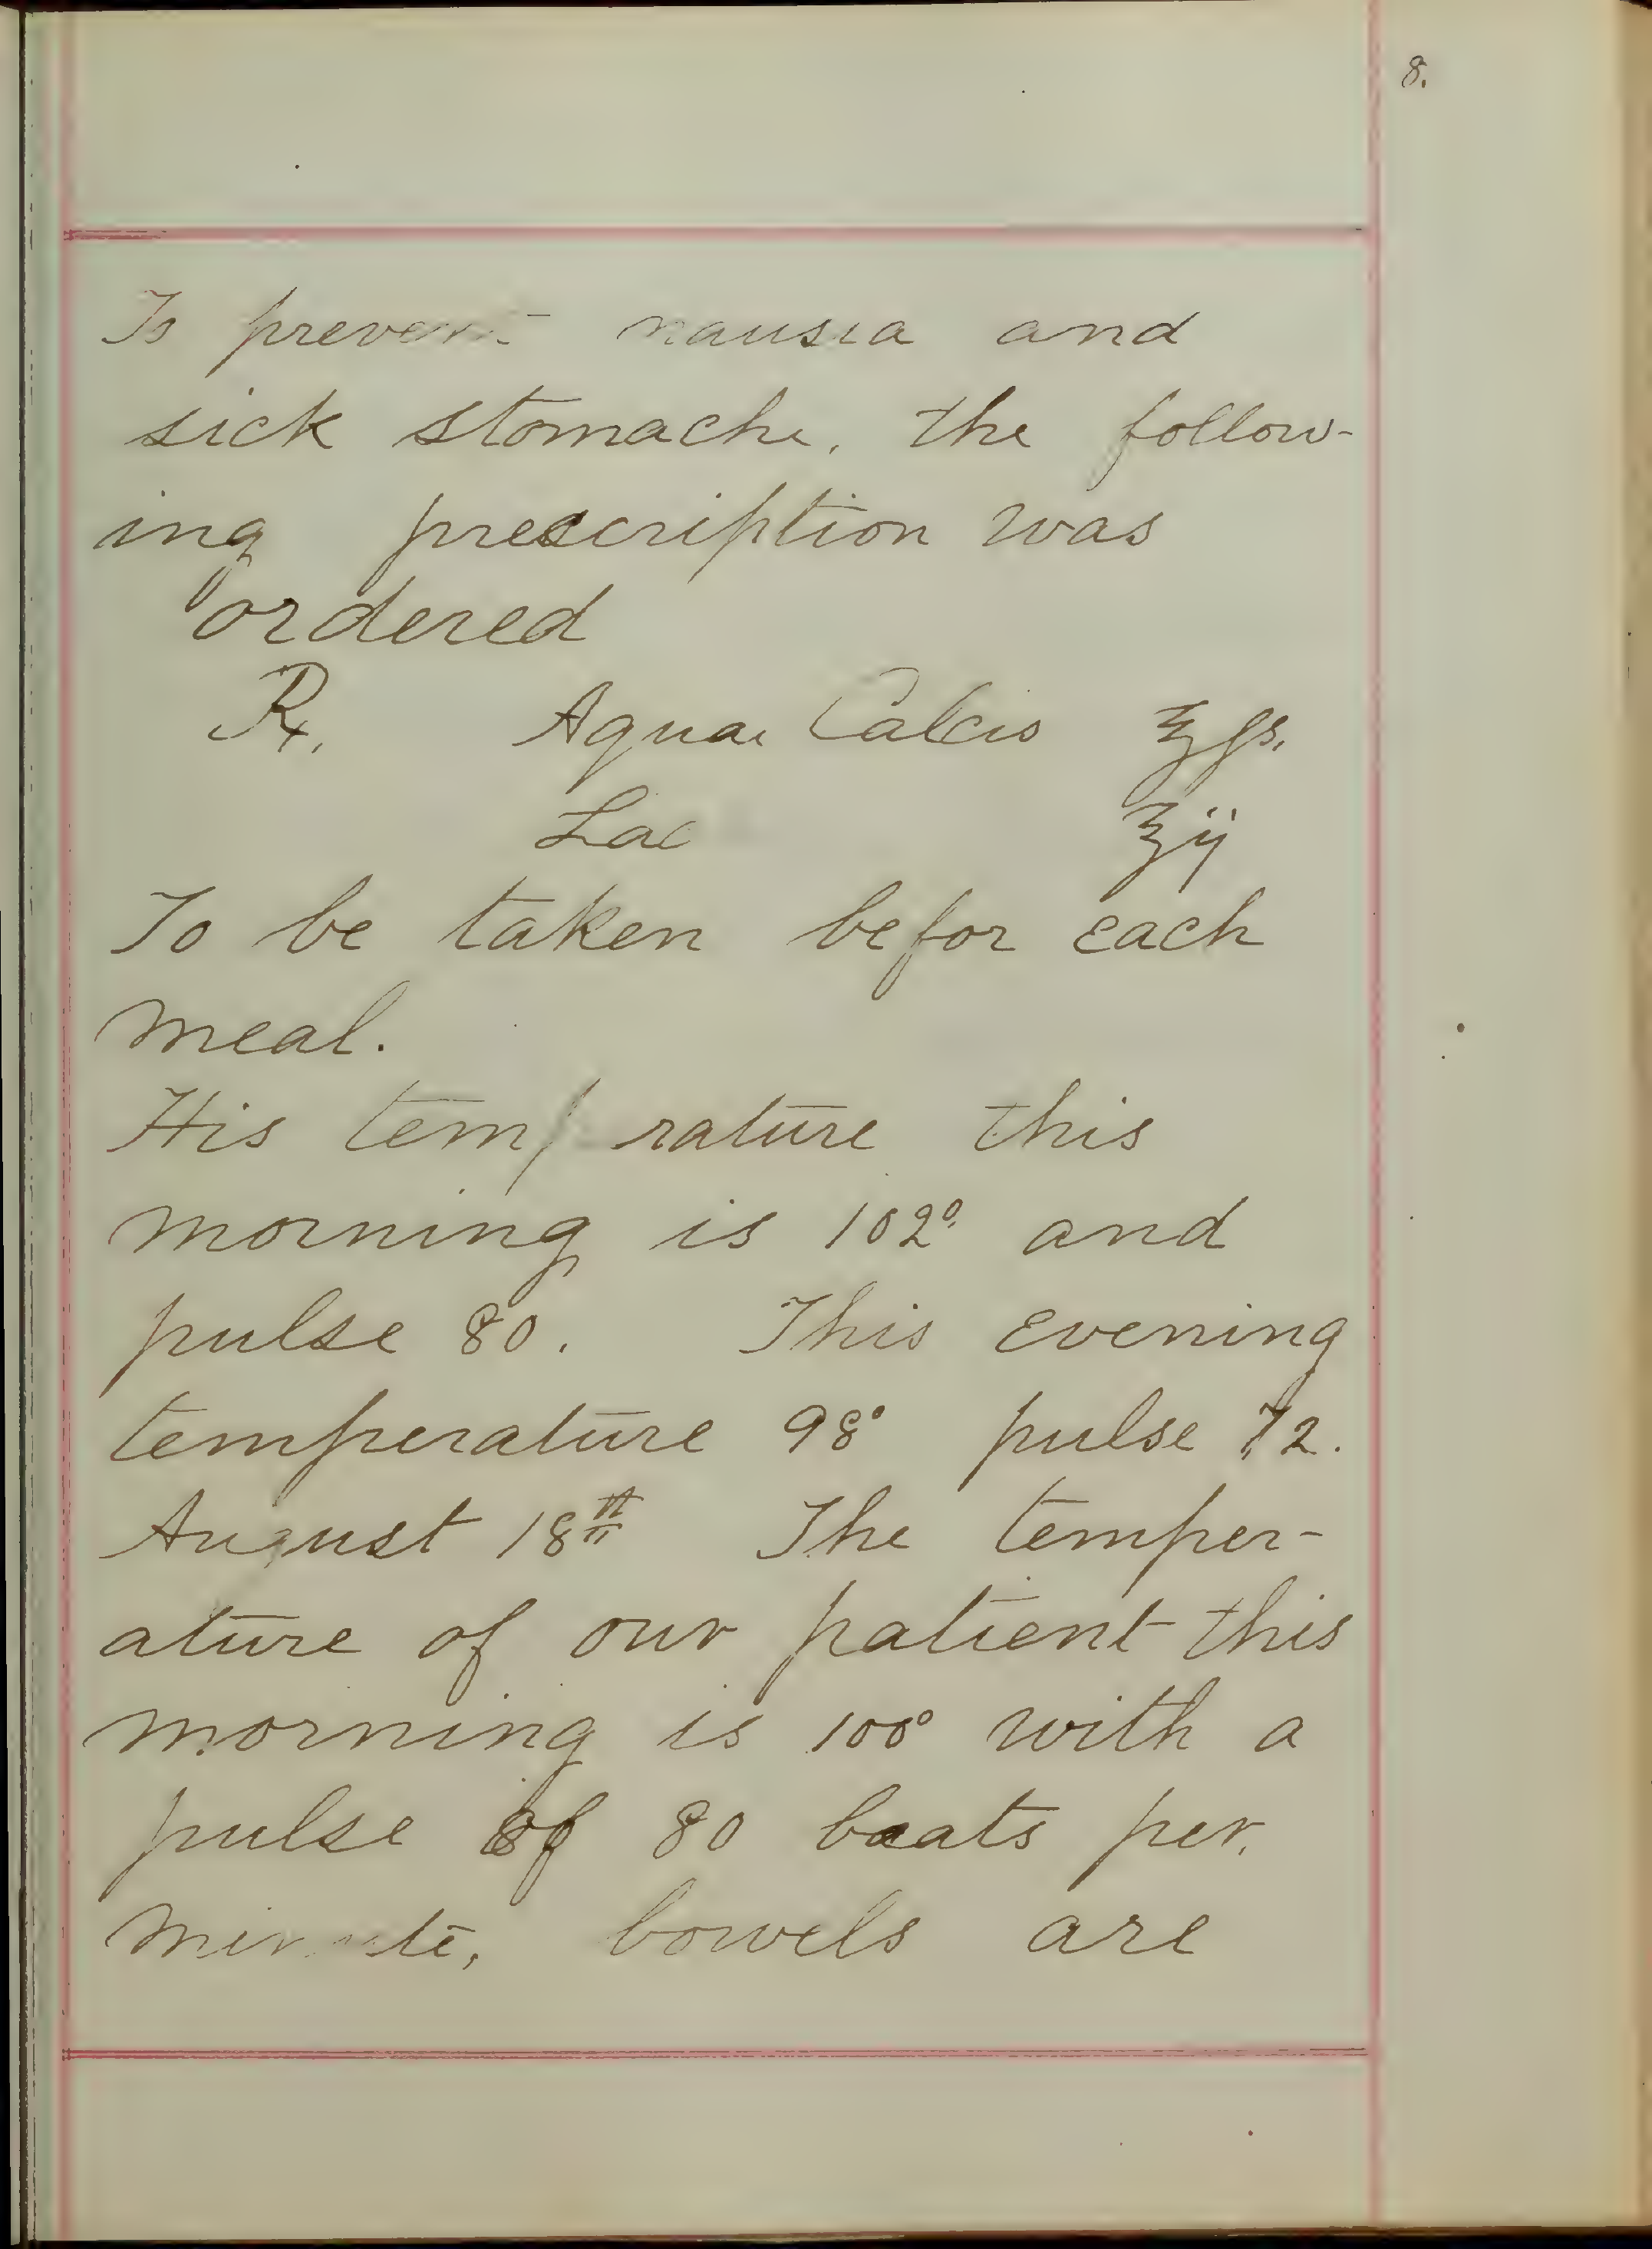 8.
To prevent nausea and
sick stomache, the follow-
ing prescription was
ordered
℞. Aquae Calcis ℥ ss.
Lac ℥ ij
To be taken befor each
meal.
His temperature this
morning is 102° and
pulse 80. This evening
temperature 98° pulse 72.
August 18th The temper-
ature of our patient this
morning is 100° with a
pulse of 80 beats per.
minute, bowels are